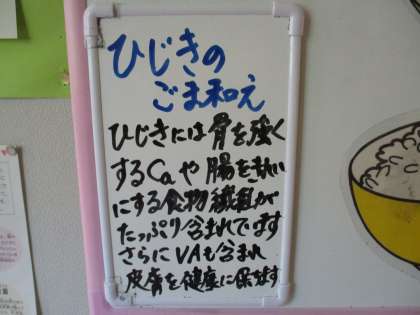 ひじきの
ごま和え
ひじきには骨を強く
するCaや腸をきれい
にする食物繊維が
たっぷり含まれています
さらにVAも含まれ
皮膚を健康に保ちます